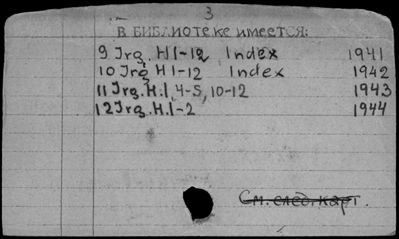 3
В БИБЛИОТЕКЕ ИМЕЕТСЯ:
9 Jrg. H 1-12, Index 1941
10 Jrg H 1-12 Index 1942
11 Jrg. H. 1, 4-5, 10-12 1943
12 Jrg. H. 1-2 1944
См. след. карт.